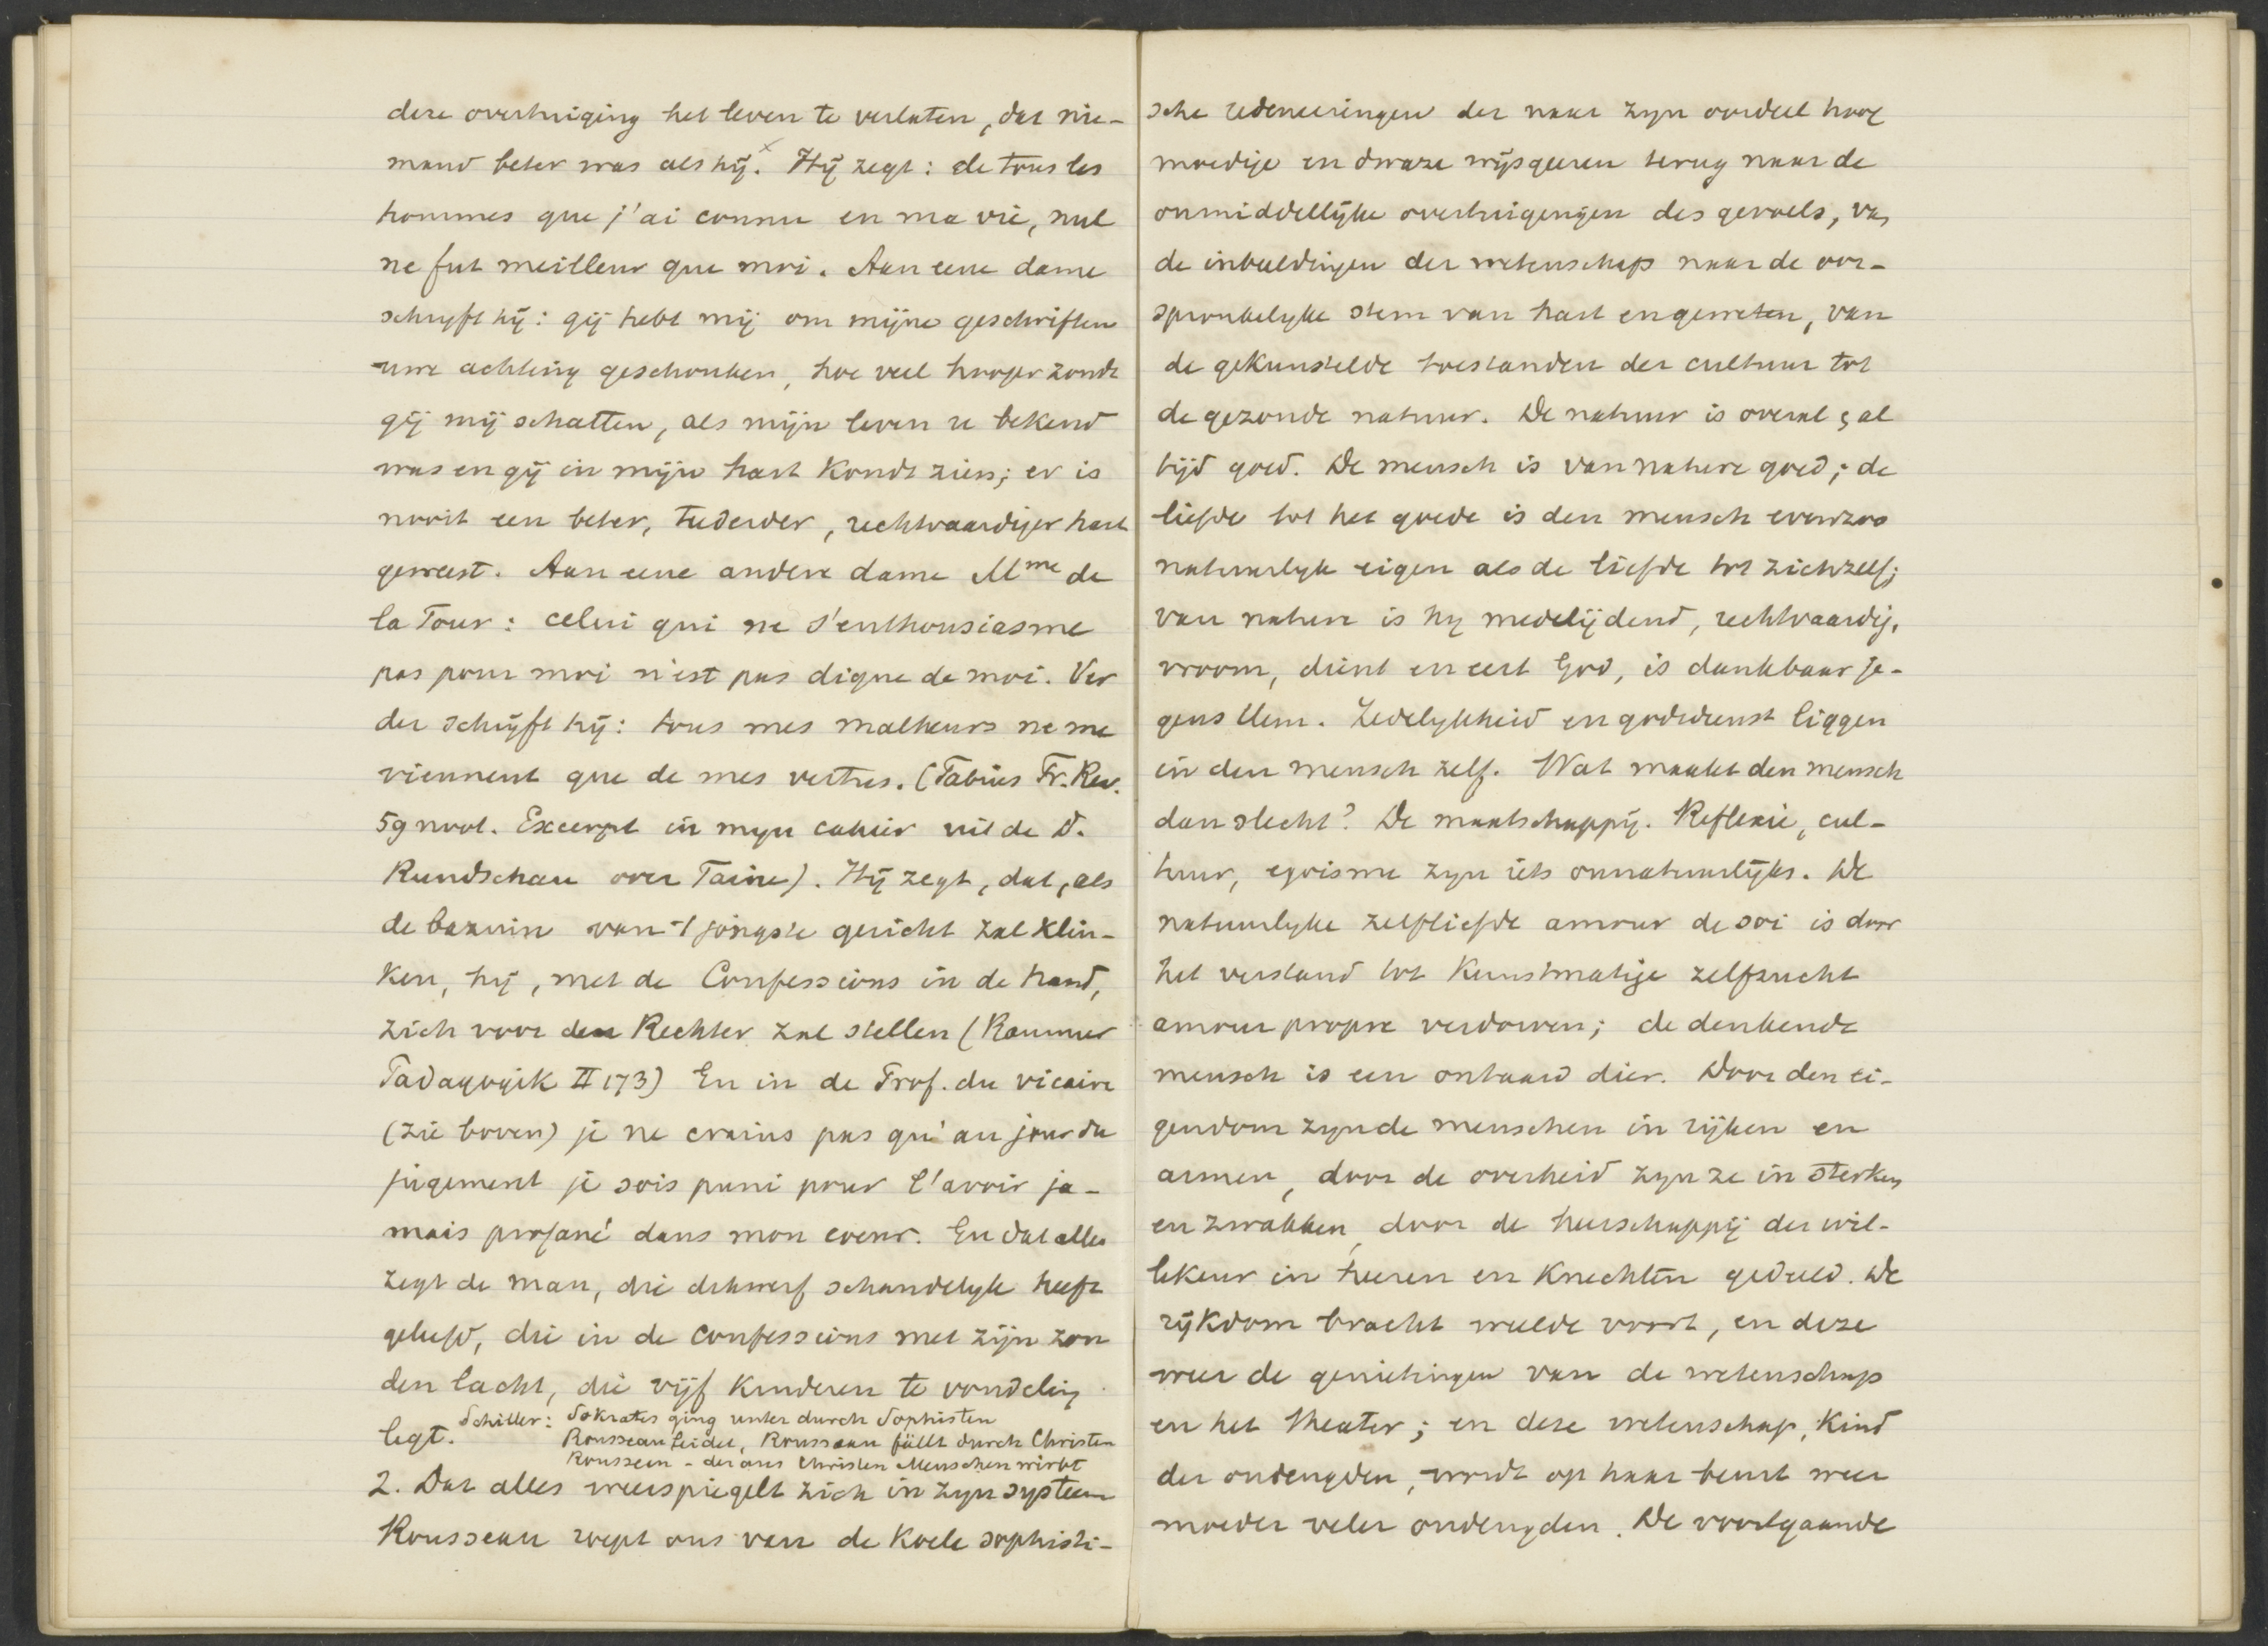 deze overtuiging het leven te verlaten, dat nie-
mand beter was als hij. x Hij zegt: de tous les
hommes que j'ai connu en ma vie, nul
ne fut meilleur que moi. Aan eene dame
schryft hij: gij hebt mij om mijne geschriften
uwe achting geschonken, hoe veel hooger zoudt
gij mij schatten, als mijn leven u bekend
was en gij in mijn hart kondt zien; er is
nooit een beter, tederder, rechtvaardiger hart
geweest. Aan eene andere dame Mme de
la Tour: celui qui ne s'enthousiasme
pas pour moi n'est pas digne de moi. Ver
der schrijft hij: tous mes malheurs ne me
viennent que de mes vertus. (Pabius Fr. Rev.
59 noot. Excerpt in myn cahier uit de D.
Rundschau over Taine). Hij zegt, dat, als
de bazuin van 't jongste gericht zal klin-
ken, hij, met de Confessions in de hand,
zich voor den Rechter zal stellen (Raumer
Padagogik II 173) En in de Prof. du vicaire
(zie boven) je ne crains pas qu'au jour du
jugement je sois puni pour l'avoir ja-
mais profané dans mon coeur. En dat alles
zegt de man, die dikwerf schandelyk heeft
geleefd, die in de confessions met zijn zon
den lacht, die vijf kinderen te vondeling
legt. Schiller: Sokrates ging unter durch Sophisten
Rousseau leidet, Rousseau fällt durch Christen
Rousseau - der aus Christen Menschen wirbt
2. Dat alles weerspiegelt zich in zyn systeem
Rousseau roept ons van de koele sophisti-
sche redeneeringen der naar zyn oordeel hoog
moedige en dwaze wijsgeeren terug naar de
onmiddellijke overtuigingen des gevoels, van
de inbeeldingen der wetenschap naar de oor-
spronkelyke stem van hart en geweten, van
de gekunstelde toestanden der cultuur tot
de gezonde natuur. De natuur is overal & al
tijd goed. De mensch is van nature goed; de
liefde tot het goede is den mensch evenzoo
natuurlyk eigen als de liefde tot zichzelf;
van nature is hy medelijdend, rechtvaardig,
vroom, dient en eert God, is dankbaar je-
gens Hem. Zedelykheid en godsdienst liggen
in den mensch zelf. Wat maakt den mensch
dan slecht? De maatschappij. Reflexie, cul-
tuur, egoisme zyn iets onnatuurlijks. De
natuurlyke zelfliefde amour de soi is door
het verstand tot kunstmatige zelfzucht
amour propre verdorven; de denkende
mensch is een ontaard dier. Door den ei-
gendom zyn de menschen in rijken en
armen, door de overheid zyn ze in sterken
en zwakken, door de heerschappij der wil-
lekeur in heeren en knechten gedeeld. De
rijkdom bracht weelde voort, en deze
weer de genietingen van de wetenschap
en het theater; en deze wetenschap, kind
der ondeugden, wordt op haar beurt weer
moeder veler ondeugden. De voortgaande